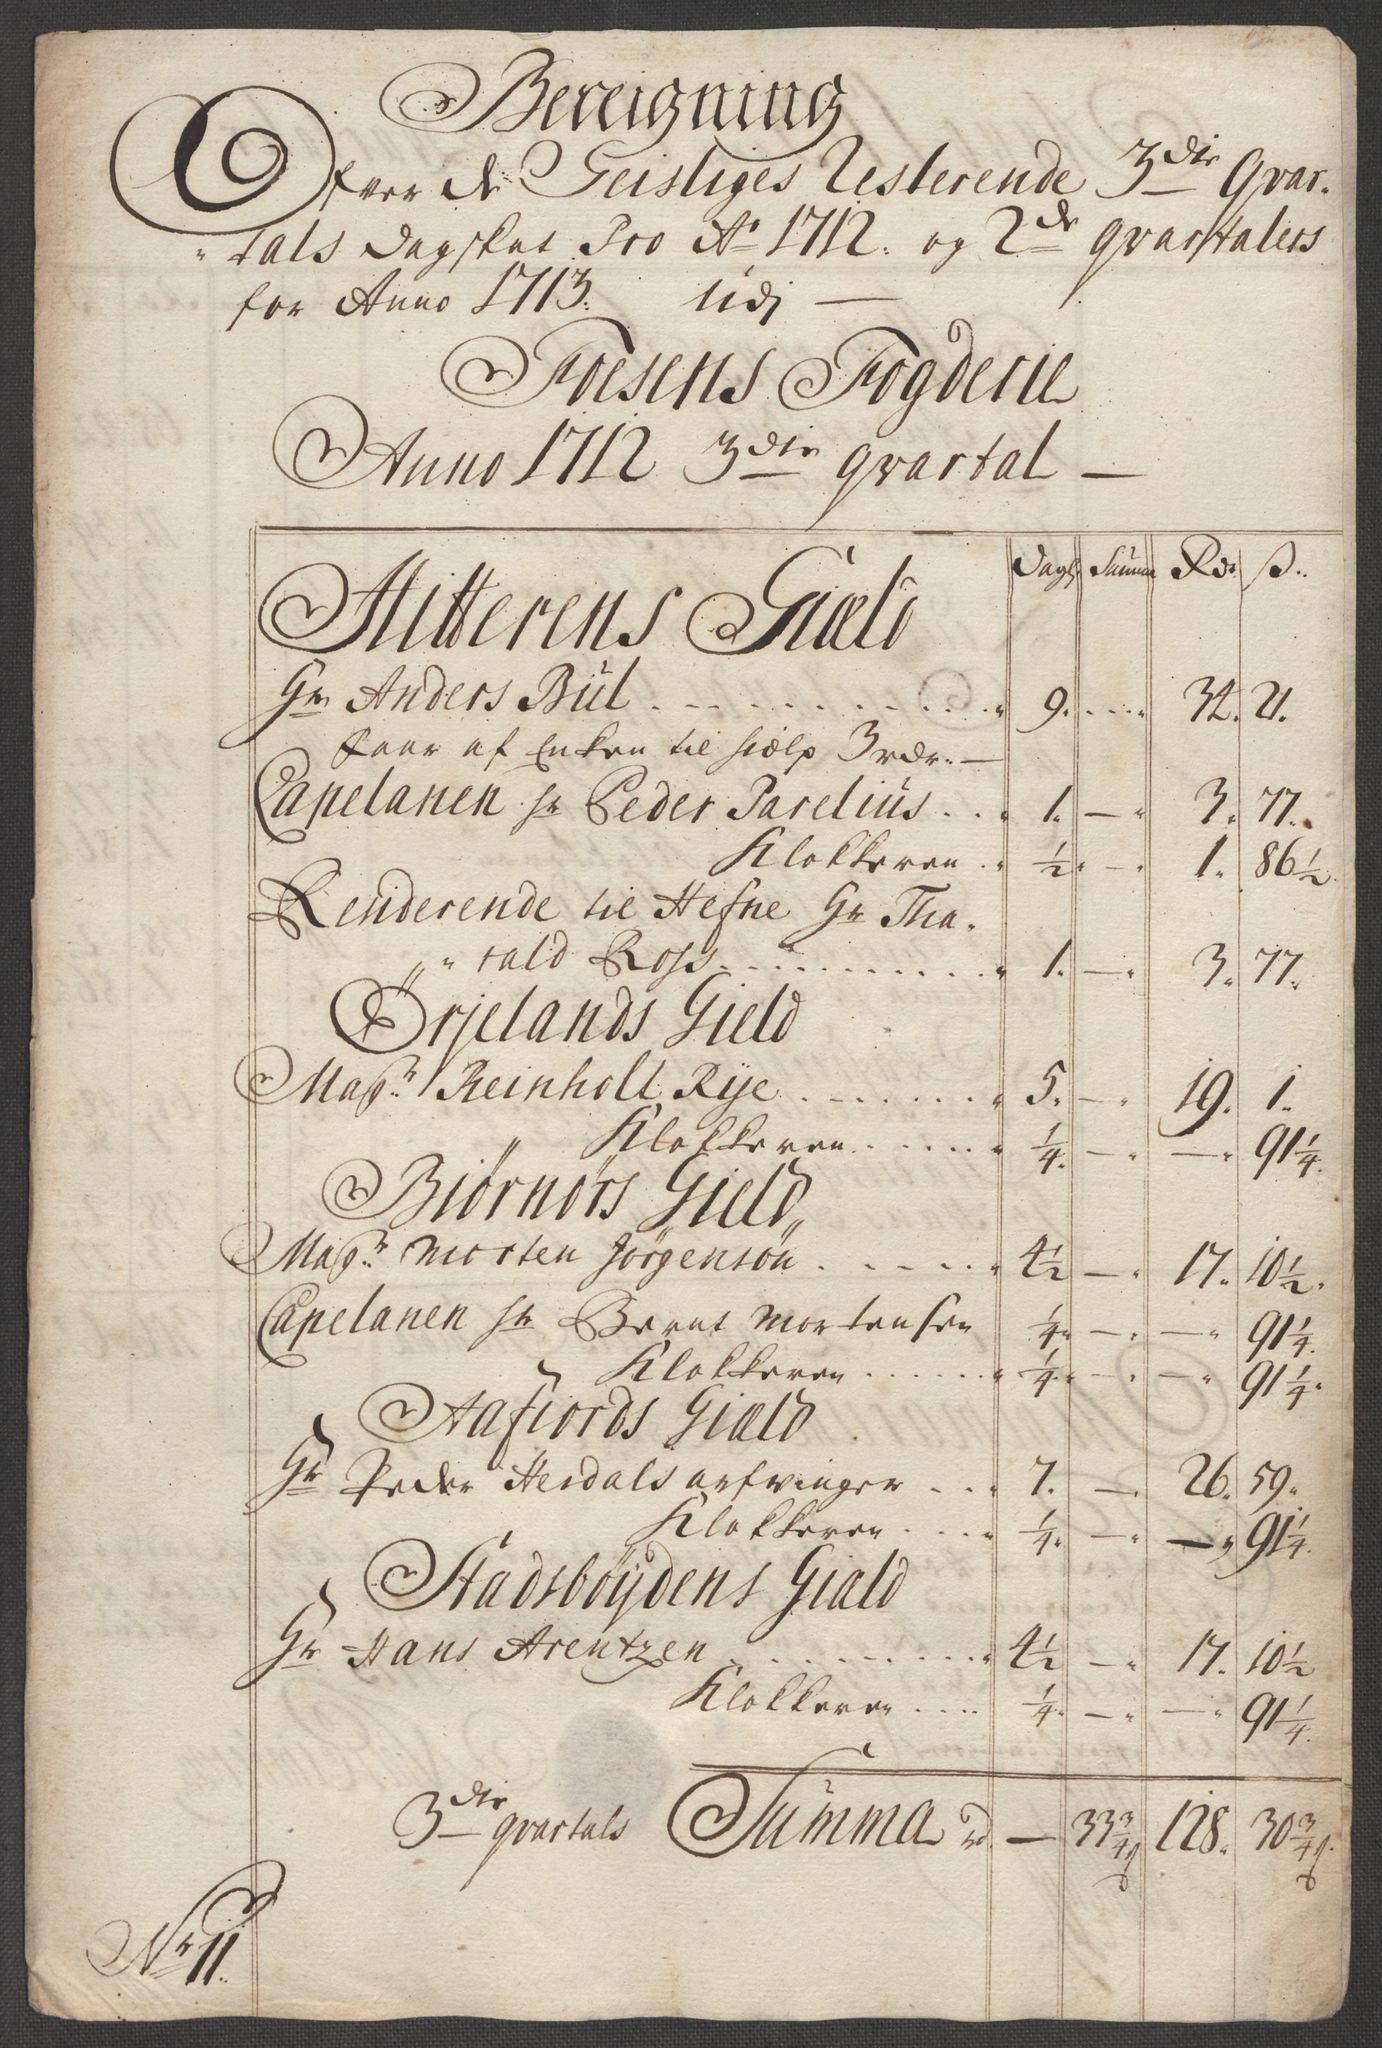 Bereigning
Ofver de Geistliges Resterende 3die Qvar-
tals Dagskat Pro Ao 1712. og 2de qvartalers
for Anno 1713. Udj —
Foesens Fogderie
Anno 1712 3die qvartal —
Dagl. Summa Rdr ß..
Hitterens Giæld
Hr Anders Bûl . . . . 9. . . . 34. 21.
Faar af Enken til hielp 3 rdr. —
Capelanen hr Peder Parelius . . . 1. — 3. 77.
Klokkeren . ½ — 1. 86½
Renderende til Hefne Hr Tha-
rald Ross . . . . 1. — 3. 77.
Ørjelands Gield
Magr. Reinholt Rye . . . . 5. — 19. 1.
Klokkeren . . . . ¼. — — 91¼.
Biørnørs Gield
Magr. Morten Jørgensøn . . . . 4½ — 17. 10½.
Capelanen hr Bernt Mortensen ¼. — — 91¼.
Klokkeren . . . . ¼. — — 91¼.
Aafiords Giæld
Hr Peder Herdals arfvinger . . . 7. — 26. 59.
Klokkeren . . . . ¼. — — 91¼.
Stadsbøydens Giæld
Hr Hans Arentzen . . . . 4½ — 17. 10½
Klokkeren . . . . ¼. — — 91¼.
3die qvartals Summa — 33¾ 128. 30¾
No 11.